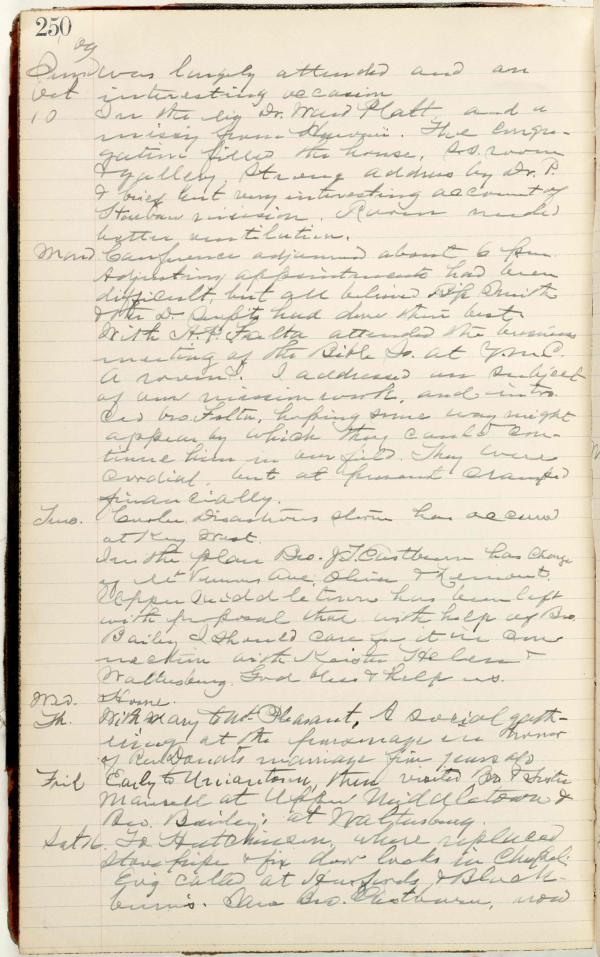 250
09
Sund was largely attended and an
Oct interesting occasion
10 In the evg Dr. Ward Platt and a
missy from. The congre-
gation filled the house, S.S. room
& gallery. Strong address by Dr. P.
& brief but very interesting account of
mission. Room needed
better ventilation.
Mond Conference adjourned about 6 P.m.
Adjusting appointments had been
difficult, but all believed Bp. Smith
& the D. Supts had done their best
With A.P. Folta attended the business
meeting of the Bible So. at Y.M.C.
A rooms. I addressed on subject
of our mission work, and intro-
ced bro. Folta, hoping some way might
appear by which they could con-
tinue him in our field. They were
cordial, but at present cramped
financially.
Tues. Cooler. Disastrous storm has occured
at Key West.
In the plan Bro. J.T. Eastburn has charge
of Mt Vernon Ave, Oliver & Lemont.
Upper Middletown has been left
with proposal that with help of Bro.
Baily I should care for it in con-
nection with Keister, Helen &
Waltersburg. God bless & help us.
Wed. Home.
Th. With Mary to Mt. Pleasant. A social gath-
ering at the parsonage in honor
of marriage five years ago
Frid Early to Uniontown, then visited Bro & Sister
Mansell at Upper Middletown &
Bro. Baily's at Waltersburg.
Sat 16. To Hutchinson, where replaced
stove pipe & fix door locks in Chapel.
Evg called at & Black-
burn's. Saw Bro. Eastburn, now